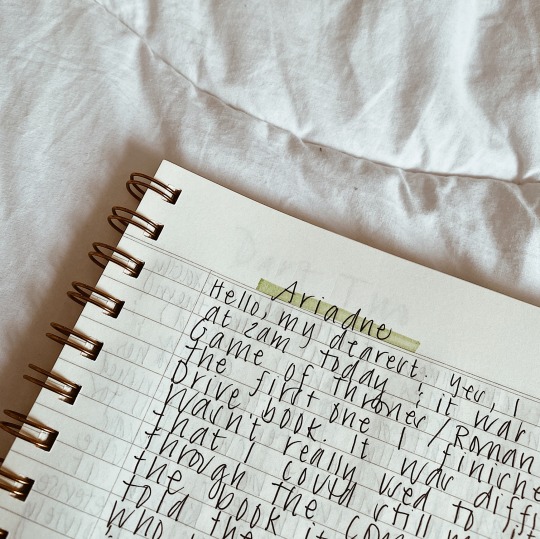 Ariadne
Hello, my dearest. Yes, I
at 2am today & it was
Game of Thrones/Roman
the first one I finishe
Drive book. It was diffi
wasn't really used to
that I could still
through the com
the book it
told the
who